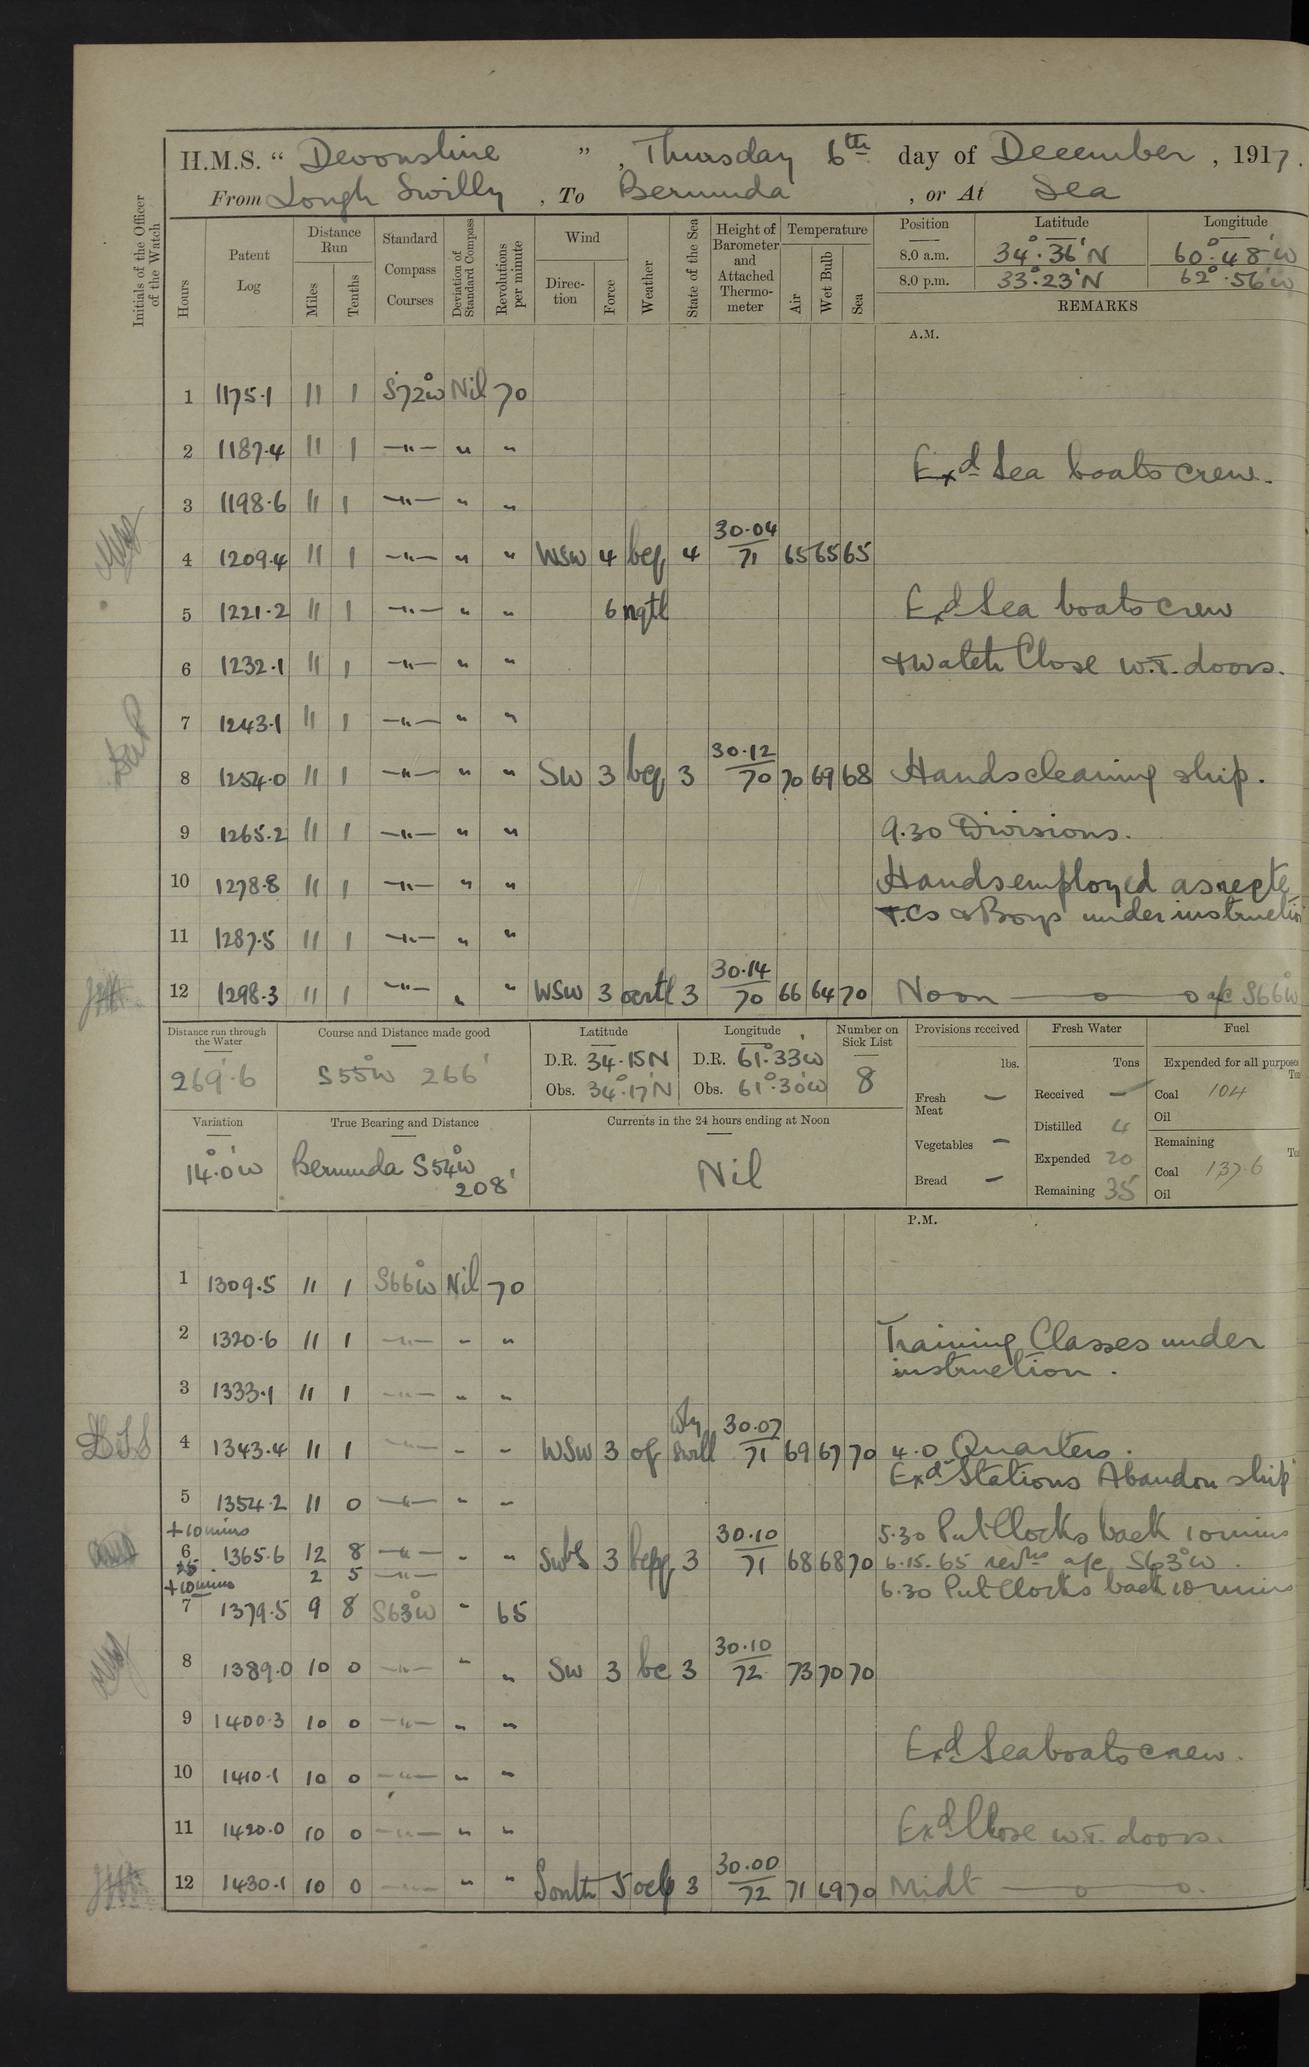 H.M.S. " Devonshire " , Thursday 6th day of December , 1917.
From Lough Swilly , To Bermuda , or At Sea
Initials of the Officer of the Watch
Hours
Patent Log
Distance Run
Miles
Tenths
Standard Compass Courses
Deviation of Standard Compass
Revolutions per minute
Wind
Direction
Force
Weather
State of the Sea
Height of Barometer and Attached Thermometer
Temperature
Air
Wet Bulb
Sea
Position Latitude Longitude
8.0 a.m. 34°.36'N 60°.48'W
8.0 p.m. 33°.23'N 62°.56'W
REMARKS
A.M.
1 1175.1 11 1 S72°W Nil 70
2 1187.4 11 1 —"— " "
Exd Sea boats crew.
3 1198.6 11 1 —"— " "
4 1209.4 11 1 —"— " " WSW 4 bcq 4 30.04/71 65 65 65
5 1221.2 11 1 —"— " " 6 Exd Sea boats crew
6 1232.1 11 1 —"— " " & watch Close W.T. doors.
7 1243.1 11 1 —"— " "
8 1254.0 11 1 —"— " " SW 3 bcq 3 30.12/70 70 69 68 Hands cleaning ship.
9 1265.2 11 1 —"— " " 9.30 Divisions.
10 1278.8 11 1 —"— " " Hands employed as reqte
T.Cs & Boys under instruction
11 1287.5 11 1 —"— " "
12 1298.3 11 1 —"— " " WSW 3 3 30.14/70 66 64 70 Noon —o—o a/c S66°W
Distance run through the Water
269'.6
Course and Distance made good
S55°W 266'
Latitude
D.R. 34.15N
Obs. 34°.17'N
Longitude
D.R. 61°.33'W
Obs. 61°.30'W
Number on Sick List
8
Provisions received
lbs.
Fresh Meat —
Vegetables —
Bread —
Fresh Water
Tons
Received —
Distilled 4
Expended 20
Remaining 35
Fuel
Expended for all purposes
Coal 104
Oil
Remaining
Coal 1376
Oil
Variation
14°.0'W
True Bearing and Distance
Bermuda S54°W
208'
Currents in the 24 hours ending at Noon
Nil
P.M.
1 1309.5 11 1 S66°W Nil 70
2 1320.6 11 1 —"— " " Training Classes under
instruction.
3 1333.1 11 1 —"— " "
4 1343.4 11 1 —"— " " WSW 3 swell 30.07/71 69 67 70 4.0 Quarters.
Exd Stations Abandon ship
5 1354.2 11 0 —"— " "
+10 mins 5.30 Put Clocks back 10 mins
6 1365.6 12 8 —"— " " SWbS 3 3 30.10/71 68 68 70 6.15. 65 revns a/c S63°W.
25 2 5 —"—
+10 mins 6.30 Put Clocks back 10 mins
7 1379.5 9 8 S63°W " 65
8 1389.0 10 0 —"— " " SW 3 bc 3 30.10/72 73 70 70
9 1400.3 10 0 —"— " "
Exd Sea boats crew.
10 1410.1 10 0 —"— " "
11 1420.0 10 0 —"— " " Exd Close W.T. doors.
12 1430.1 10 0 —"— " " South 5 3 30.00/72 71 69 70 Midt —o—o.